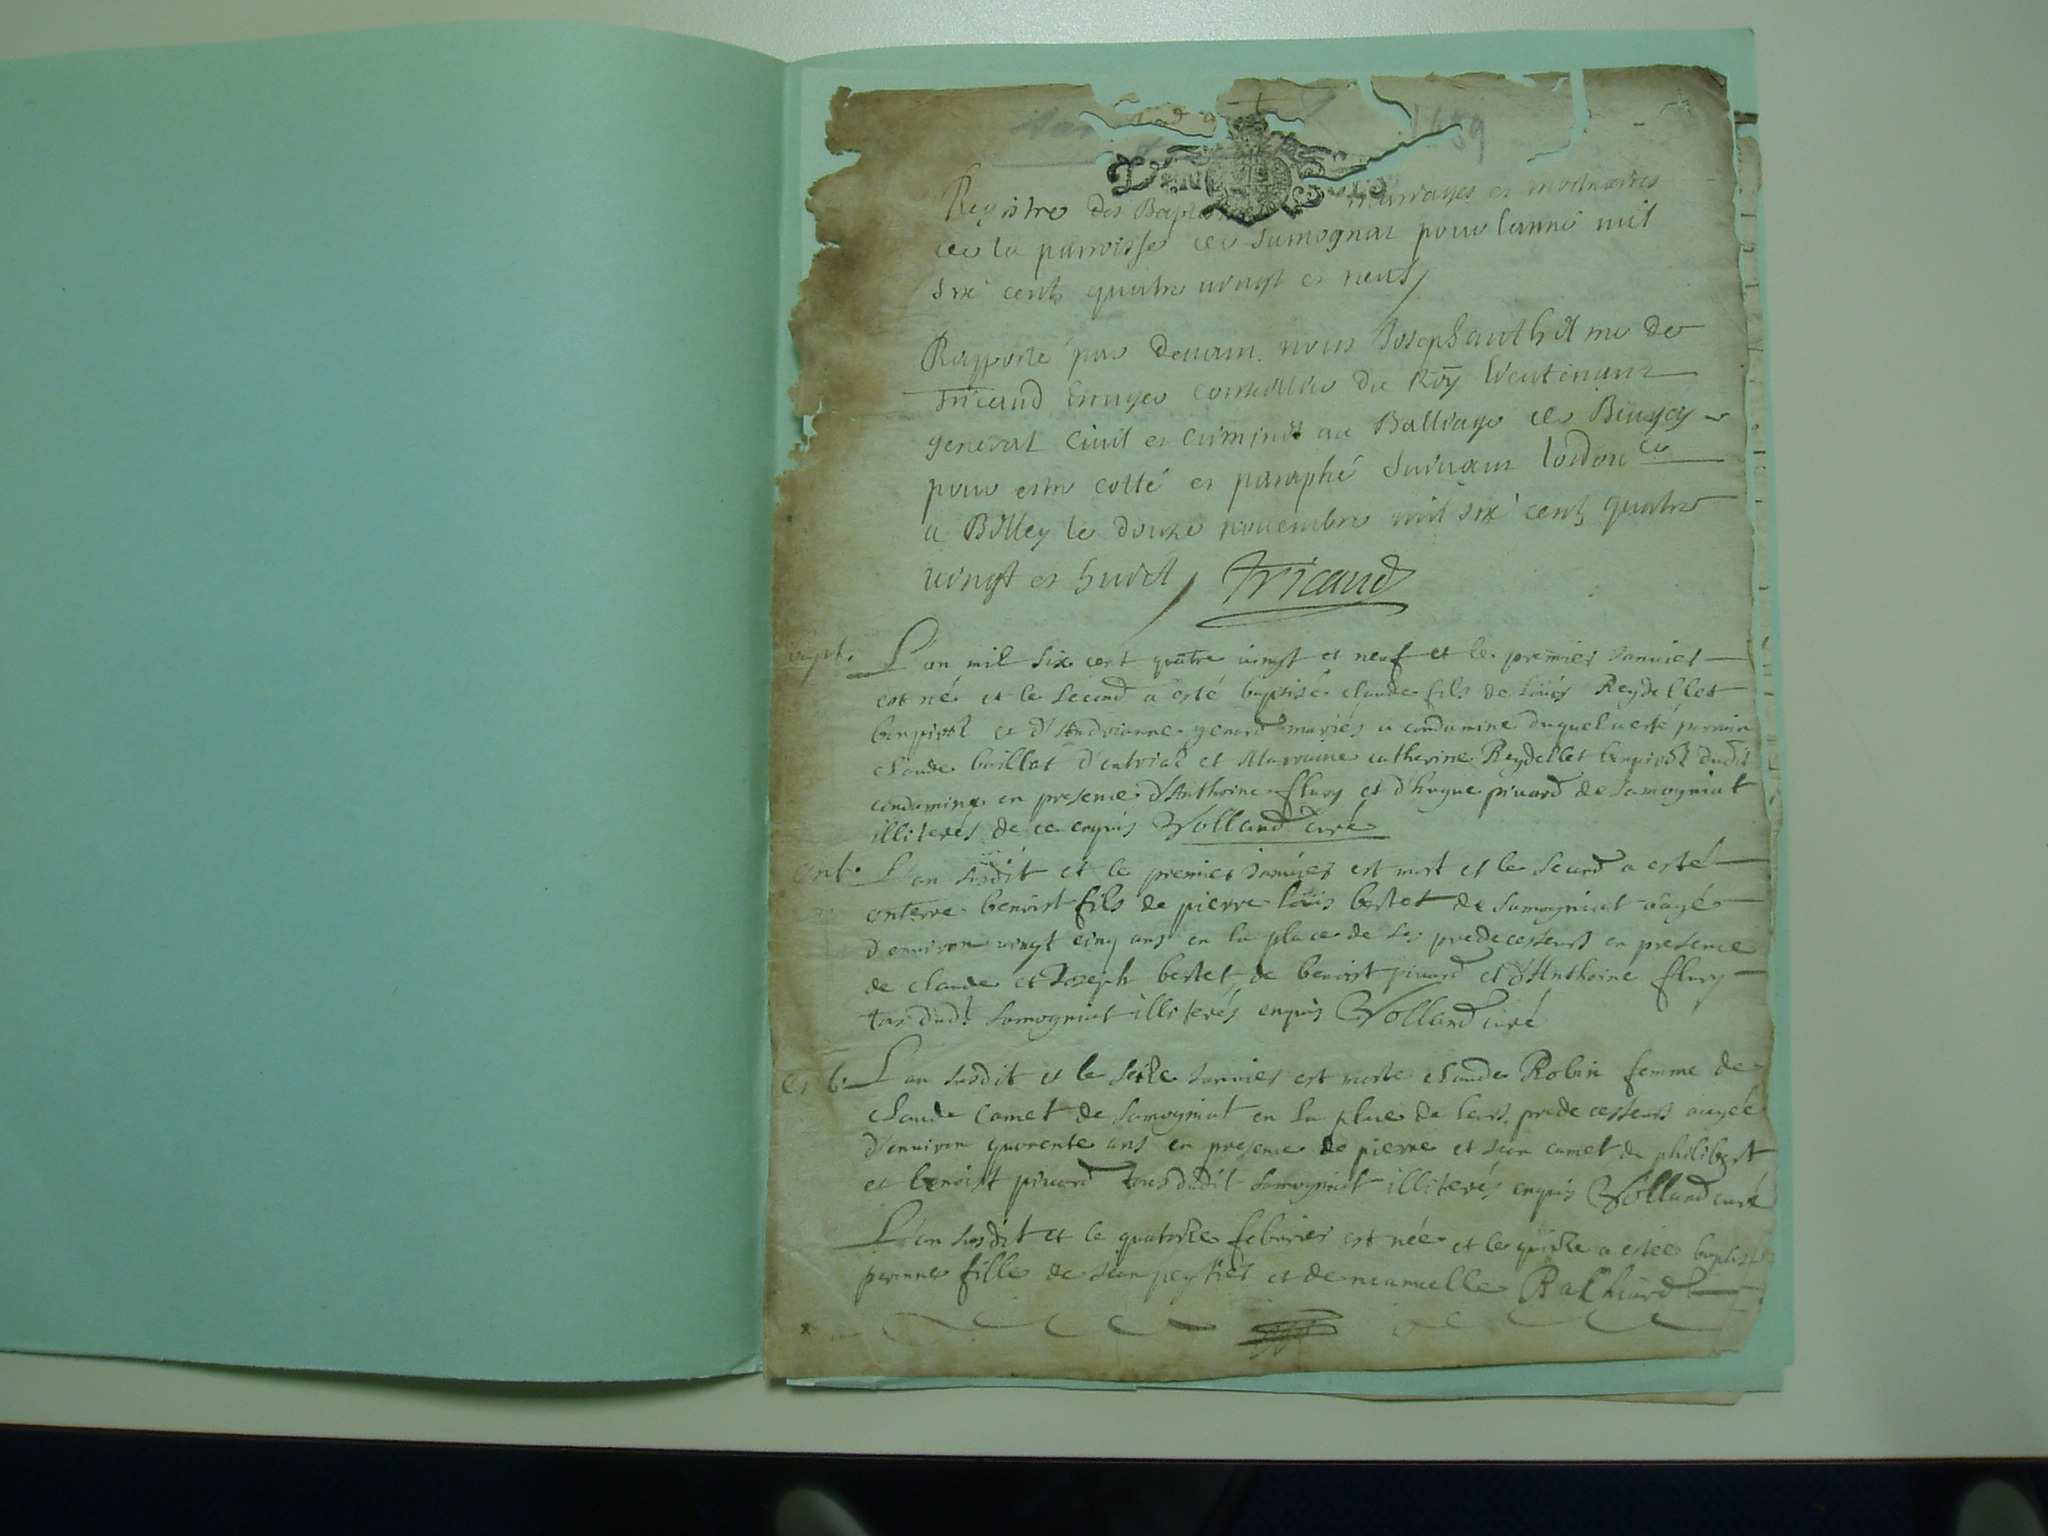 1689
Registre des Baptesmes mariages et mortuaires
de la parroisse de Samognat pour lannee mil
six cents quatre vingt et neuf
Rapporté par devant nous Joseph anthelme de
Tricaud Escuyer conseiller du Roy lieutenant
general civil et criminel au Balliage de Beugey
pour estre cotté et paraphé suivant lordon.ce
a Belley le douze novembre mil six cents quatre
vingt et huict Tricaud
bapt. L'an mil six cent quatre vingt et neuf et le premier Janvier
est né et le second a esté baptisé claude fils de Louis Reydellet
benpivol et d'Andrianne genard mariés a condamine duquel a esté parrain
claude buillat et Marraine catherine Reydellet benpivol dudit
condamine en presence d'Anthoine flury et d'hugue pivard de Samogniat
illiterés de ce enquis Volland curé
ent. L'an susdit et le premier Janvier est mort et le second a esté
enterre benoist fils de pierre louis bertet de Samogniat aagé
d'environ vingt cinq ans en la place de ses predecesseurs en presence
de claude et Joseph bertet de benoist pivard et d'Anthoine flury
tous dud.t Samogniat illiterés enquis Volland curé
L'an susdit et le seize Janvier est morte claude Robin femme de
claude Camet de Samogniat en la place de leurs predecesseurs aagée
d'environ quarente ans en presence de pierre et Jean camet de philibert
et benoist pivard tous dudit Samogniat illiterés enquis Volland curé
L'an susdit et le quatorze febvrier est née et le quinze a estée baptisée
peronne fille de Jean peysiet et de